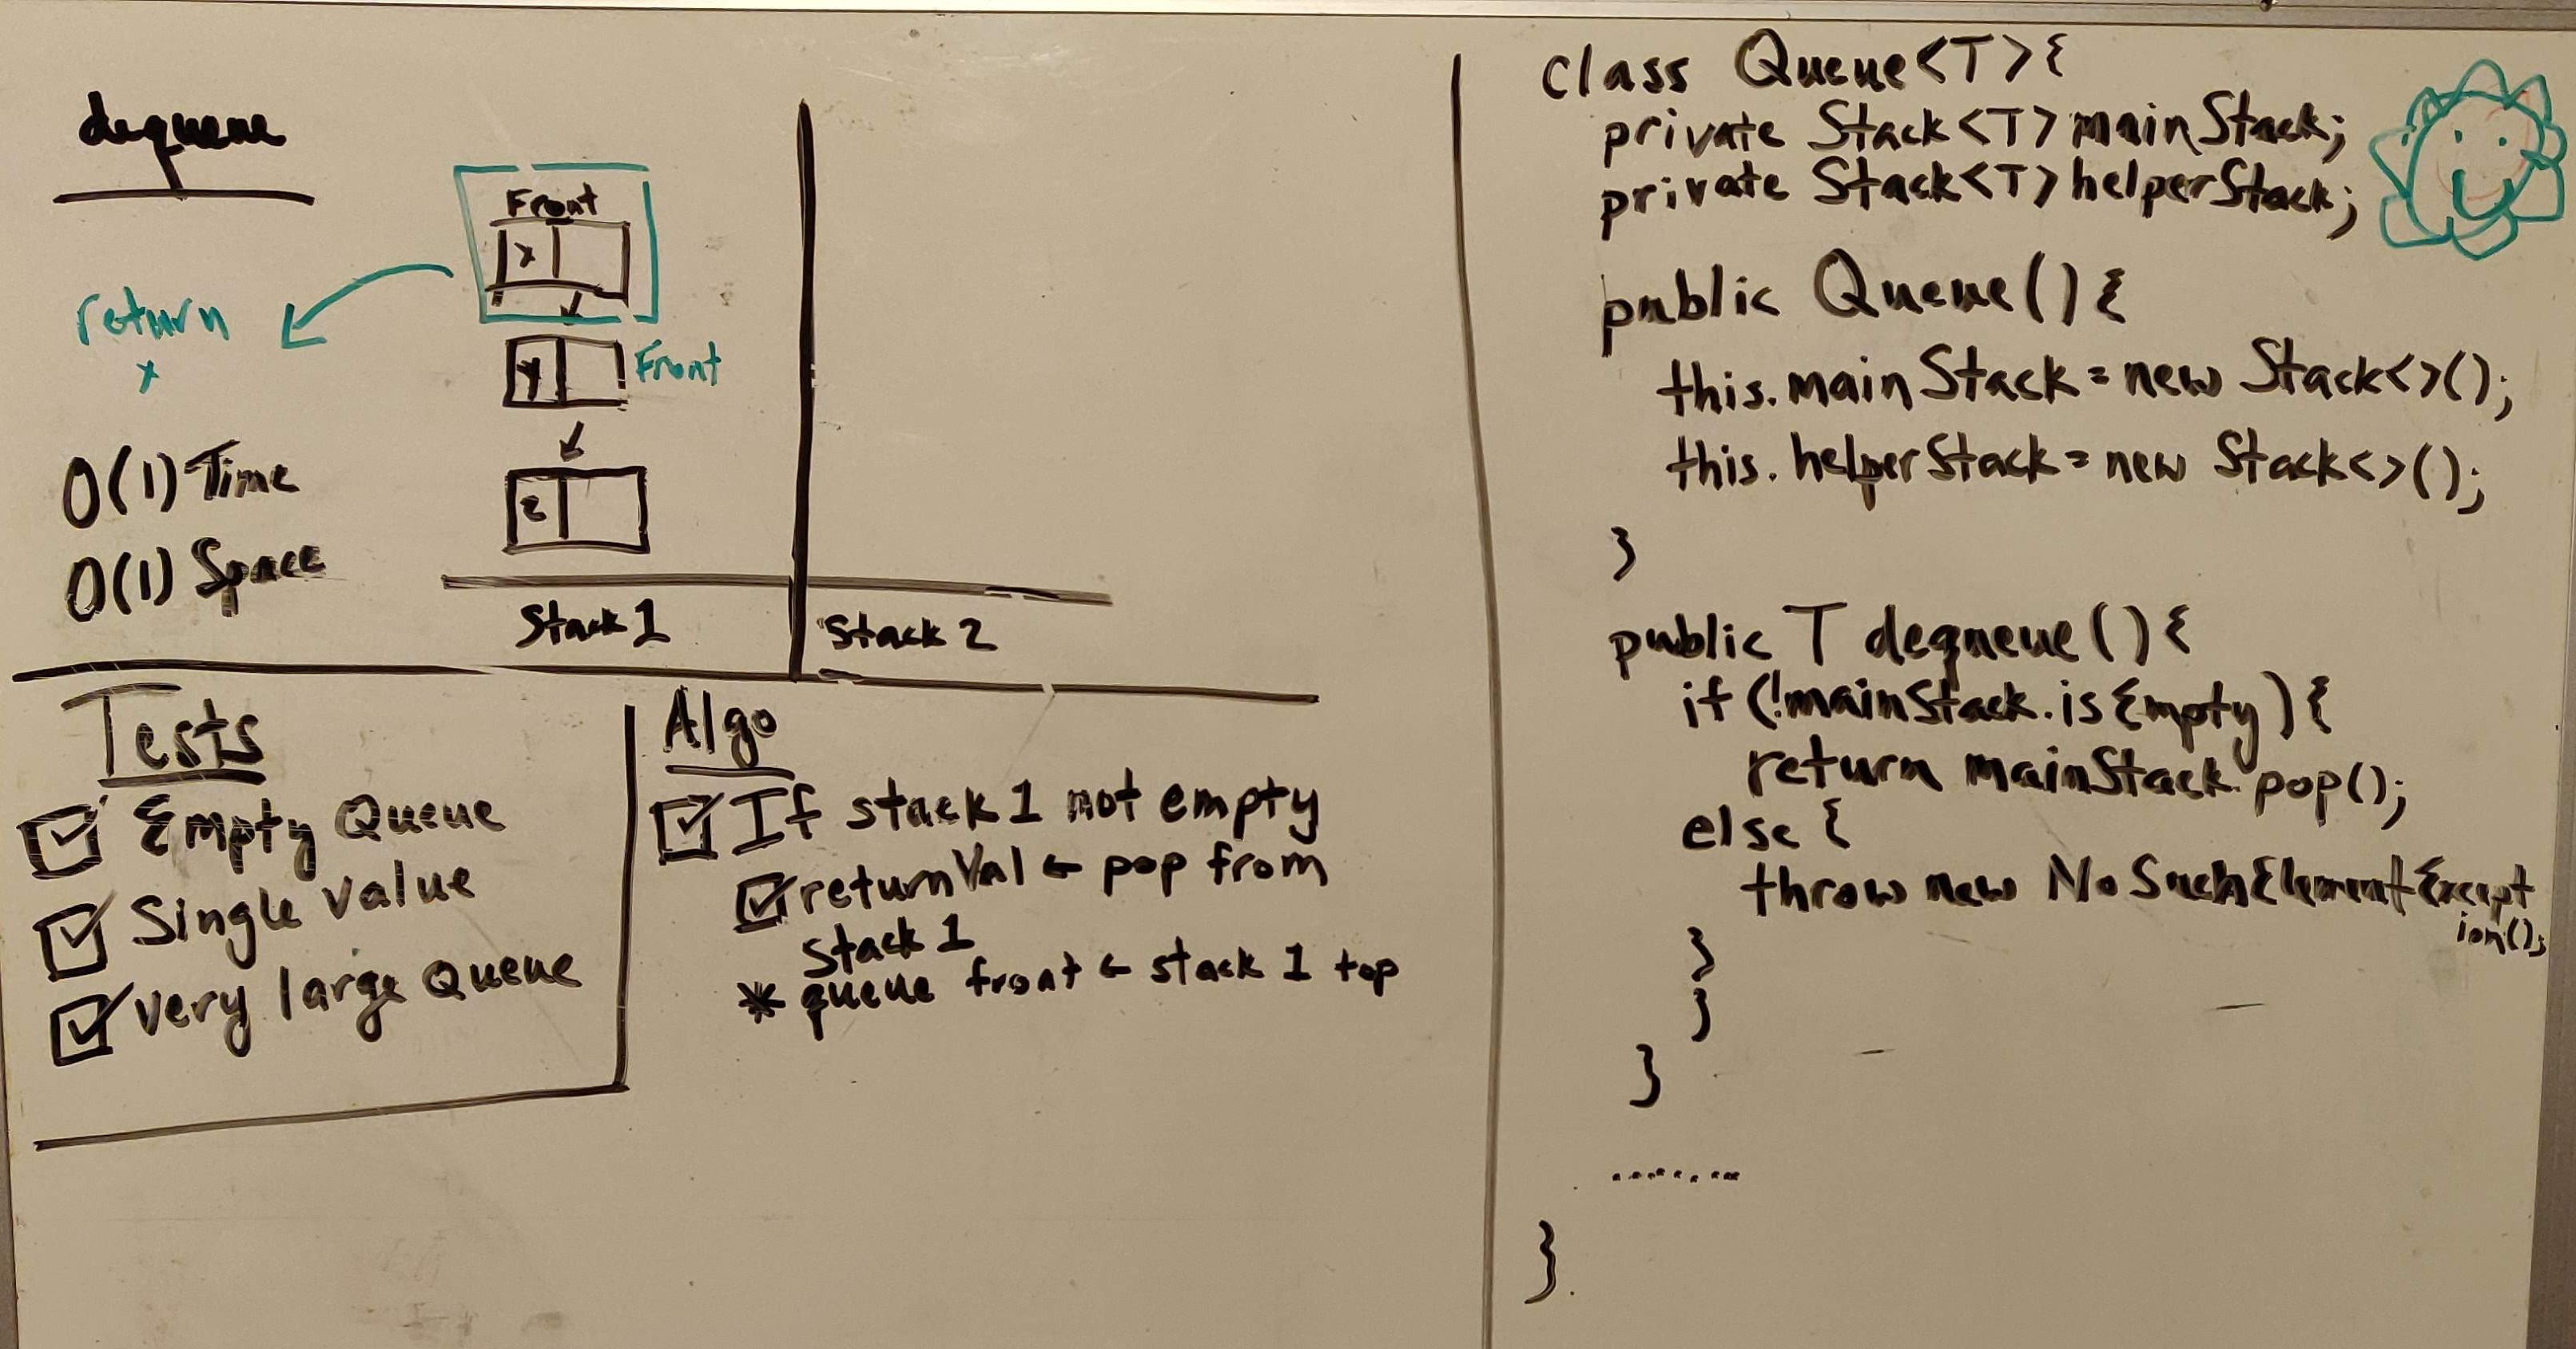 dequeue
Front
x
return
x
y
Front
z
O(1) Time
O(1) Space
Stack 1
Stack 2
Tests
Empty Queue
Single value
very large Queue
Algo
If stack 1 not empty
returnVal ← pop from
Stack 1
* queue front ← stack 1 top
class Queue<T>{
private Stack<T> mainStack;
private Stack<T> helperStack;
public Queue(){
this.mainStack = new Stack<>();
this.helperStack = new Stack<>();
}
public T dequeue(){
if (!mainStack.isEmpty){
return mainStack.pop();
else {
throw new NoSuchElementExcept
ion();
}
}
}
........
}